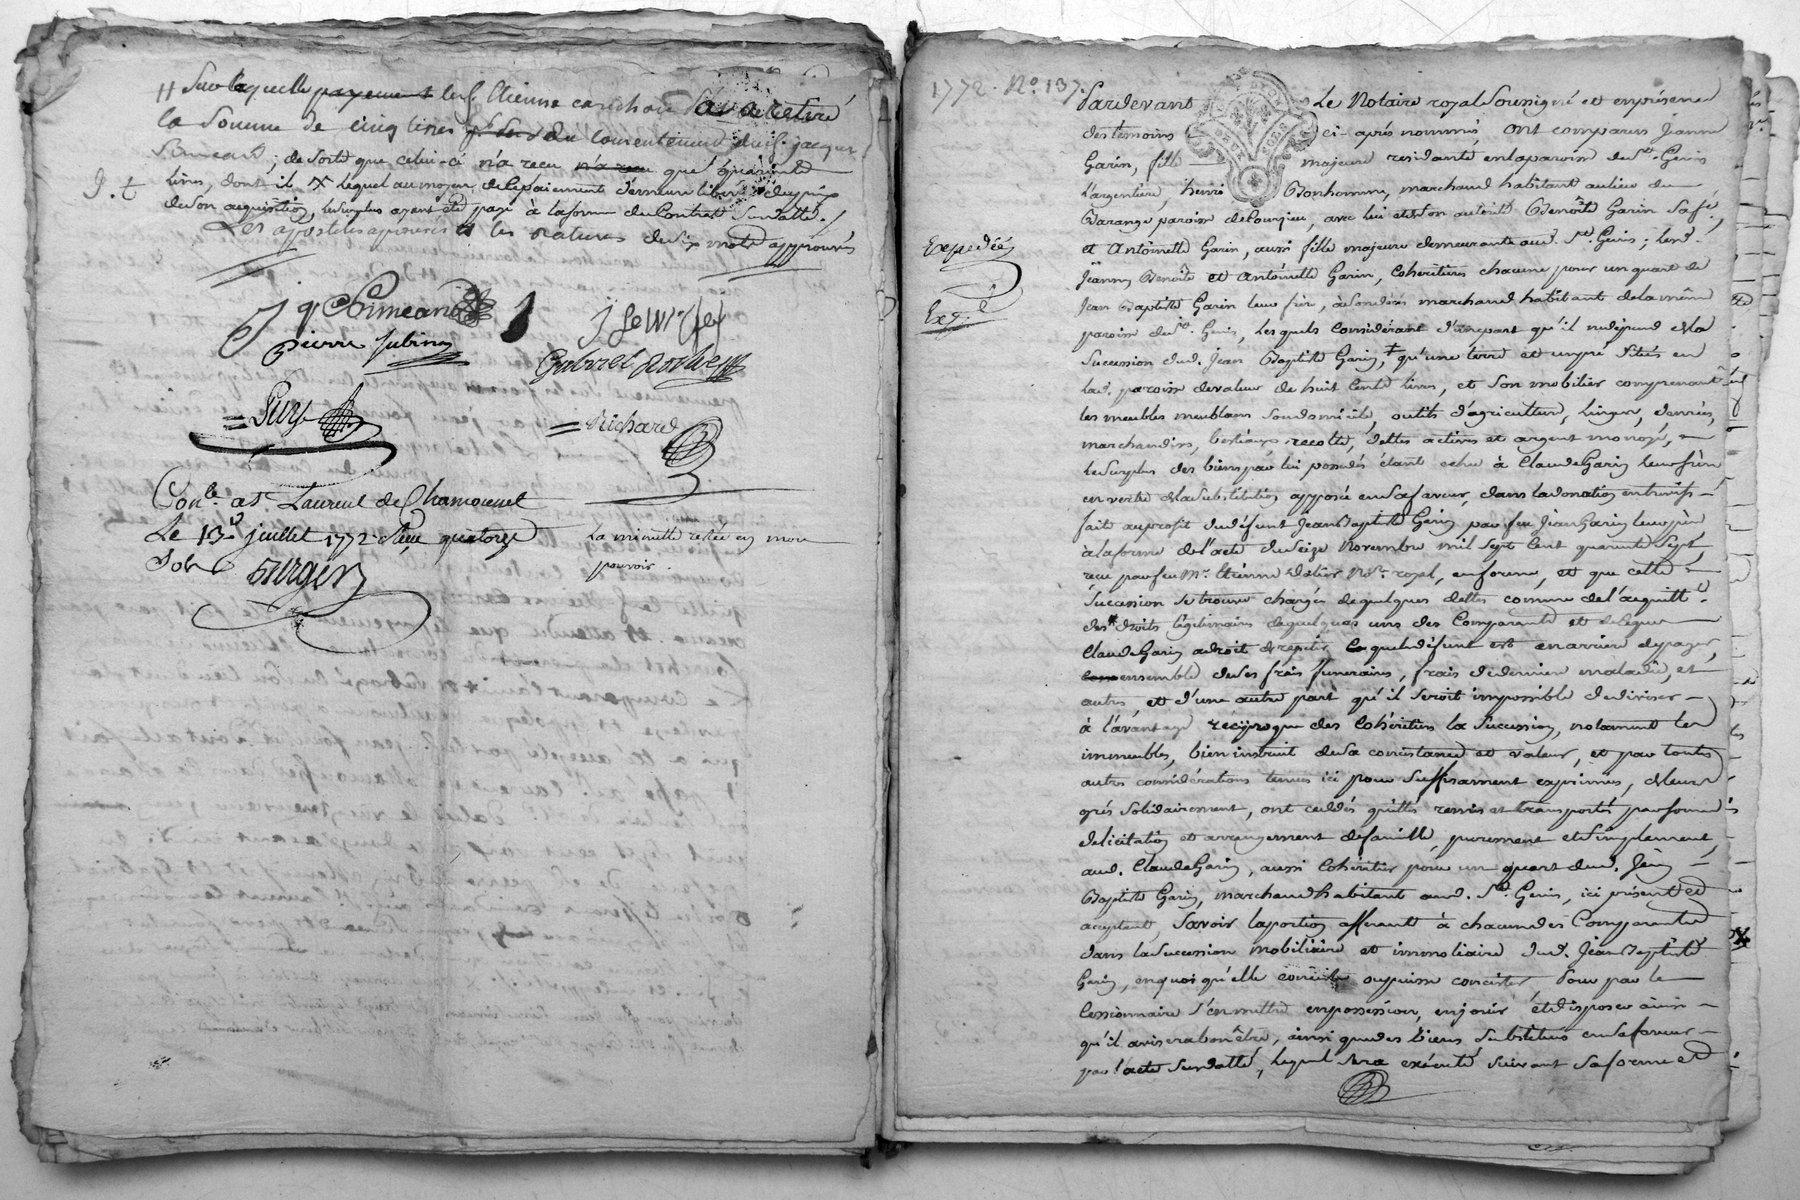 # Sur laquelle payement led. Etienne
la somme de cinq livres du consentement dud. jacques
Simeand; de sorte que celui-ci n'a reçu n'a reçu que quarante
livres, dont il # lequel au moyen de ce paiement demeure libéré du prix
de son acquisition, le surplus ayant été payé à la forme du Contrat Susdatté.
Les apostilles approuvés et les ratures de six mots approuvés
Pierre Jubin
Gabriel
= Richard
Con.lé a St. Laurent de Chamousset
Le 13e juillet 1772 Reçu quatorze
Sols
La minutte restée en mon
pouvoir.
1772. No. 137.
Pardevant Le Notaire royal Soussigné et en présence
des temoins ci-après nommés, ont comparus Jeanne
Garin, fille majeure residante en la paroisse de St. Genis
L'argentiere, henri Bonhomme, marchand habitant au lieu de
Barange paroisse de Courzieu, avec lui et de Son autorité Benoîte Garin Sa fe.,
et Antoinette Garin, aussi fille majeure demeurante aud. St. Genis; lesd.
Expediée
Jeanne Benoîte et Antoinette Garin, Cohéritières chacune pour un quart de
Jean Baptiste Garin leur frère, à Son décès marchand habitant de la même
Exp.ié
paroisse de St. Genis, Lesquels Considérant d'une part qu'il ne dépend de la
Succession dud. Jean Baptiste Garin, + qu'une terre et un pré Situés en
lad. paroisse de valeur de huit Cents livres, et Son mobilier comprenant
les meubles meublans Son domicile, outils d'agriculture, linges, denrées,
marchandises, bestiaux, recolte, dettes actives et argent monoyé,
Le Surplus des biens par lui possedés étant echu à Claude Garin leur frère
en vertu de la Substitution apposée en Sa faveur, dans la donation entrevifs
faite au profit dud. défunt Jean Baptiste Garin par feu Jean Garin leur père
à la forme de l'acte du Seize Novembre mil Sept Cent quarante Sept,
reçu par feu Mr. Etienne Notre. royal, en forme, et que cette
Succession Se trouve chargée de quelques dettes comme de l'acquittt.
des droits légitimaires de quelques uns des Comparants et de ceux que
Claude Garin a droit de repeter lesquels défunt est en arriere de payer,
ensemble de Ses frais funeraires, frais de derniere maladie, et
autres, et d'une autre part qu'il Seroit impossible de diviser
à l'avantage réciproque des Cohéritiers la Succession, notament les
immeubles, bien instruits de Sa consistance et valeur, et par toutes
autres considérations tenues ici pour Suffisament exprimées, de leurs
grés Solidairement, ont cédés quittés remis et transportés par forme
de licitation et arrangement de famille, purement et Simplement,
aud. Claude Garin, aussi Cohéritier pour un quart dud. Jean
Baptiste Garin, marchand habitant aud. St. Genis, ici présent et
acceptant, Savoir la portion afferante à chacun des Comparants
dans la Succession mobiliaire et immobiliaire dud. Jean Baptiste
Garin, en quoi qu'elle consiste ou puisse consister, Pour par le
Cessionnaire S'en mettre en possession, en jouir et disposer ainsi
qu'il avisera bon être, ainsi que des biens Substitués en Sa faveur
par l'acte Susdatté, lequel Sera exécuté Suivant Sa forme et